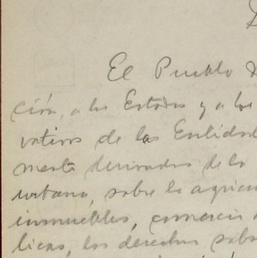 El Pueblo
ción, a los Estados y a los
vativos de las Entidad
mente derivados de la
urbana, sobre la agric
inmuebles, comercio
licas, los derechos sobr